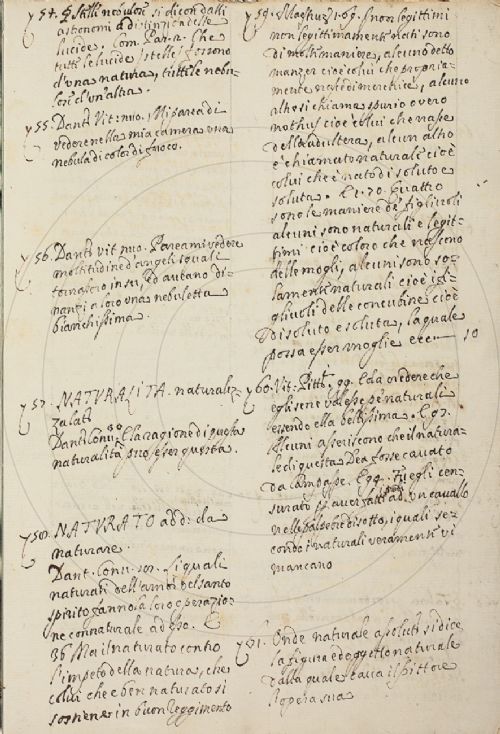 54. stelle si dicon dalli
astronomi a distinzion delle
lucide. Com. Par. 2. Che
tutte le lucide stelle fossono
d'una natura, tutte le nebu-
lose d'un'altra.
55. Dant. Vit: nuo. Mi parea di
vedere nella mia camera una
nebula di color di fuoco.
56. Dant. vit. nuo. Pareami vedere
moltitudine d'angeli i quali
tornassero in su, ed aveano di-
nanzi a loro una nebuletta
bianchissima.
57. NATURALITA. naturali-
Dant. Conv. 80. E la ragione di questa
naturalità può esser questa.
58. NATURATO add: da
naturare.
Dant. Conv. I quali
naturati dell'ambi del santo
spirito fanno la loro operazio-
ne connaturale ad esso.
36 Ma il naturato contro
l'impeto della natura, che
colui che è ben naturato si
sostiene in buon reggimento
59. Maestruz. 1. 69. I non legittimi
non legittimamente nati sono
di molte maniere, alcuno detto
manzer cioè colui che propria-
mente nasce di meretrice, alcuno
altresì chiama spurio overo
nothus cioè colui che nasce
dell'adultera, alcun altro
è chiamato naturale cioè
colui che è nato di soluto e
soluta. E 1. 70. Quattro
sono le maniere de' figliuoli
alcuni sono naturali e legit-
timi cioè coloro che nascono
delle mogli, alcuni sono so-
lamente naturali cioè i fi-
gliuoli delle concubine cioè
di soluto e soluta, la quale
possa esser moglie ecc 10
60. Vit: Pitt. 99. E da credere che
egli se ne valesse pe' naturali
essendo ella bellissima. E 97.
Alcuni asseriscono che il natura-
le di questa Dea fosse cavato
da Campaspe. E 99. Fu egli cen-
surato per aver fatti ad un cavallo
nelle palpebre di sotto, i quali se-
condo i naturali veramente vi
mancano
61. Onde naturale assoluti si dice
la figura ed oggetto naturale
dalla quale cava il Pittore
l'opera sua